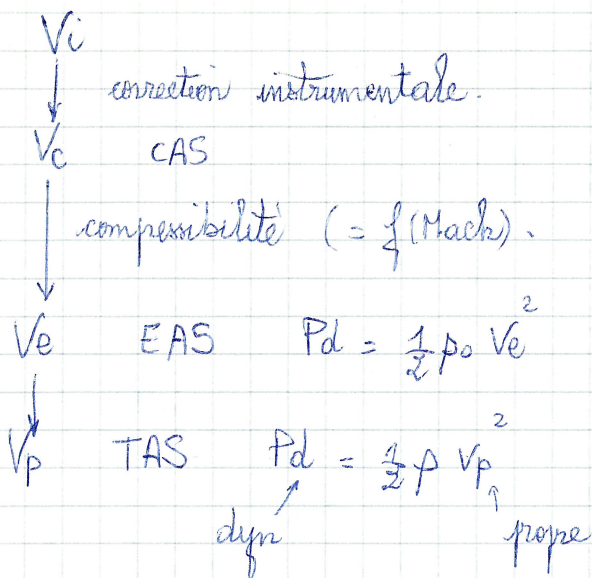 Vi
↓ correction instrumentale.
Vc CAS
↓ compressibilité (= f(Mach).
Ve EAS Pd = 1/2 ρ₀ Ve²
↓
Vp TAS Pd = 1/2 ρ Vp²
dyn propre